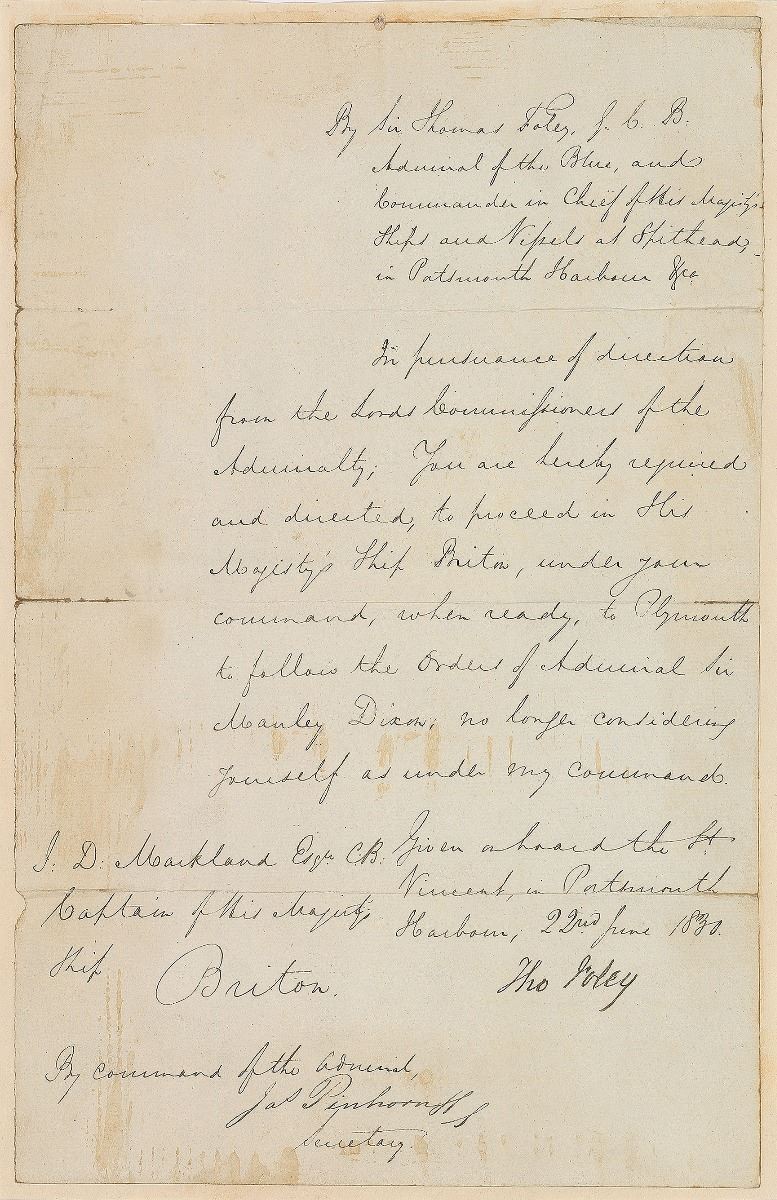 By Sir Thomas Foley, G. C. B.
Admiral of the Blue, and
Commander in Chief of His Majesty's
Ships and Vessels at Spithead,
in Portsmouth Harbour &ca
In pursuance of direction
from the Lords Commissioners of the
Admiralty; You are hereby required
and directed, to proceed in His
Majesty's Ship Briton, under your
command, when ready, to Plymouth
to follow the Orders of Admiral Sir
Manley Dixon; no longer considering
yourself as under my command.
Given on board the St.
Vincent, in Portsmouth
Harbour, 22nd June 1830.
Tho Foley
J: D: Markland Esqre CB:
Captain of His Majesty's
Ship
Briton.
By command of the Admiral,
Jas Pinhorn
Secretary.